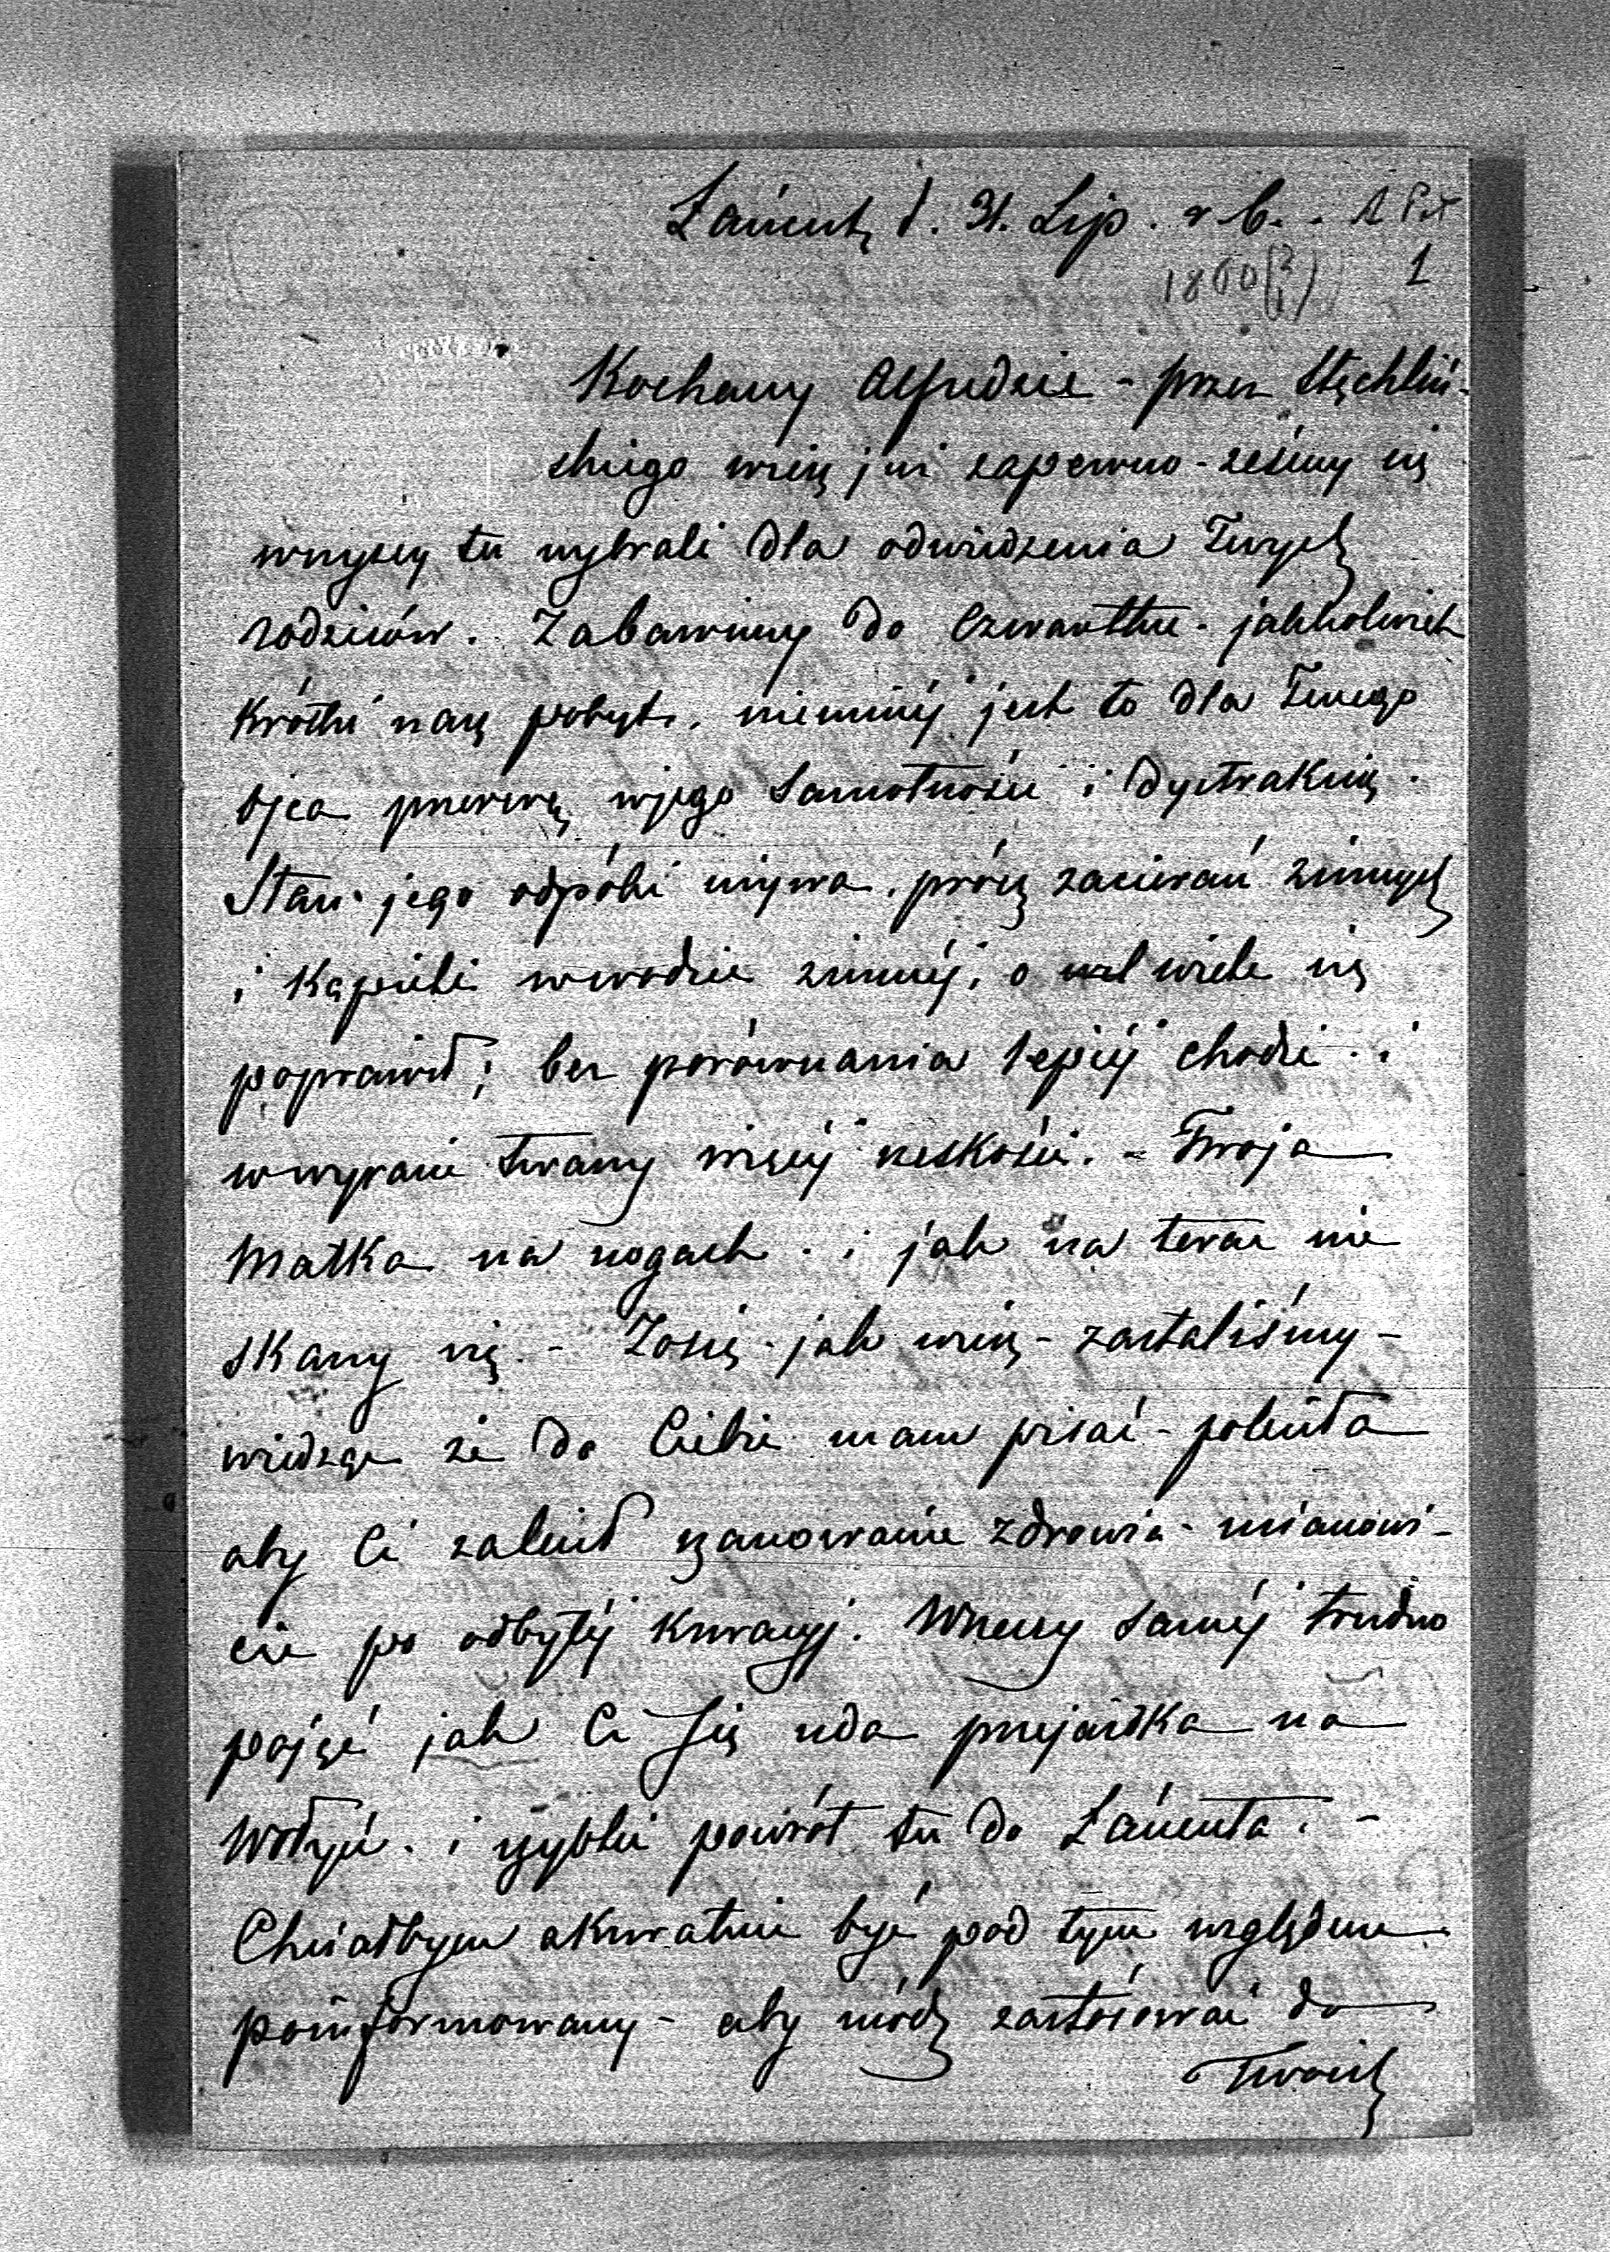 Łańcut, d. 31. Lip. r b. - A Pot
1860 (?) 1
Kochany Alfredzie - przez Stęchliń-
skiego wiesz już zapewno - żeśmy się
wszyscy tu wybrali dla odwiedzenia Twych
rodziców. Zabawimy do Czwartku - jakkolwiek
krótki nasz pobyt, niemniéj jest to dla Twego
Ojca przerwą wjego samotności i dystrakcią.
Stan jego odpóki używa, prócz zacierań zimnych
i kąpieli wwodzie zimnéj, o wiele się
poprawił; bez porównania lepiéj chodzi . i
wwyrazie twarzy więcéj rzeskości. - Twoja
Matka na nogach . i jak na teraz nie
skarzy się - Zosię - jak wiesz - zastaliśmy -
widząc że do Ciebie mam pisać - poleciła
aby Ci zalecił szanowanie zdrowia - mianowi-
cie po odbytéj kuracyj. Wrzeczy saméj trudno
pojąć jak Ci się uda przejażdka na
Wołyń . i szybki powrót tu do Łańcuta. -
Chciałbym akuratnie być pod tym względem
poinformowany - aby módz zastósować do
Twoich